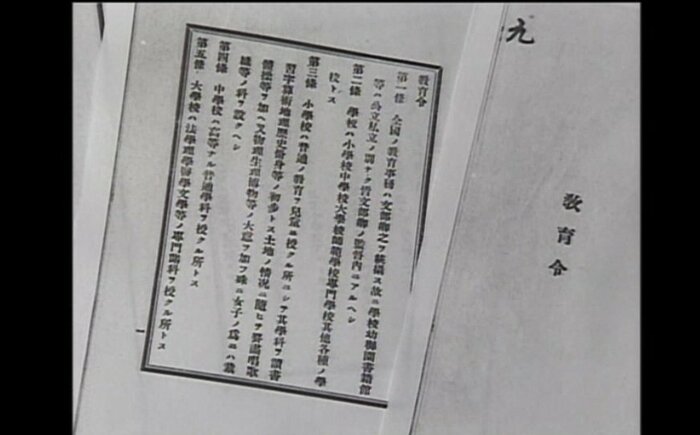 九
教育令
教育令
第一條 全國ノ教育事務ハ文部卿之ヲ統攝ス故ニ學校幼穉園書籍館
等ハ公立私立ノ別ナク皆文部卿ノ監督内ニアルヘシ
第二條 學校ハ小學校中學校大學校師範學校專門學校其他各種ノ學
校トス
第三條 小學校ハ普通ノ教育ヲ兒童ニ授クル所ニシテ其學科ヲ讀書
習字算術地理歴史脩身等ノ初歩トス土地ノ情況ニ隨ヒテ罫畫唱歌
體操等ヲ加ヘ又物理生理博物等ノ大意ヲ加フ殊ニ女子ノ爲ニハ裁
縫等ノ科ヲ設クヘシ
第四條 中學校ハ高等ナル普通學科ヲ授クル所トス
第五條 大學校ハ法學理學醫學文學等ノ專門諸科ヲ授クル所トス